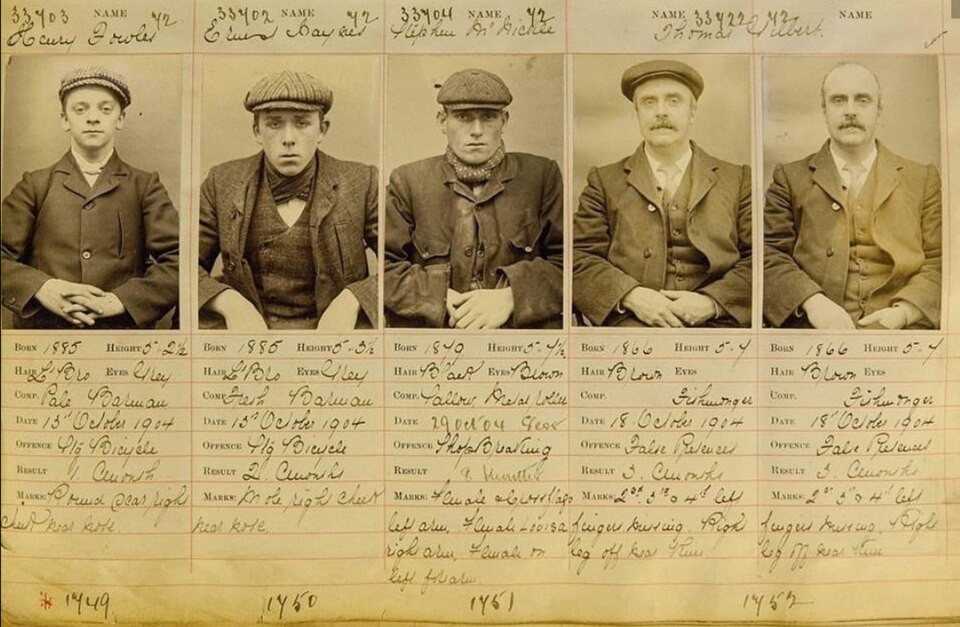 33703 NAME 72 33702 NAME 72 33704 NAME 72 NAME 33722 72 NAME
Henry Fowler Ernest Haynes Stephen McNickle Thomas Gilbert.
BORN 1885 HEIGHT 5-2½ BORN 1885 HEIGHT 5-3½ BORN 1879 HEIGHT 5-4½ BORN 1866 HEIGHT 5-4 BORN 1866 HEIGHT 5-4
HAIR Lt Bro EYES Grey HAIR Lt Bro EYES Grey HAIR Black EYES Brown HAIR Brown EYES HAIR Brown EYES
COMP. Pale Barman COMP. Fresh Barman COMP. Sallow, Metal roller COMP. Fishmonger COMP. Fishmonger
DATE 13th October 1904 DATE 13th October 1904 DATE 29 Oct 04 DATE 18 October 1904 DATE 18 October 1904
OFFENCE Stg Bicycle OFFENCE Stg Bicycle OFFENCE Shop Breaking OFFENCE False Pretences OFFENCE False Pretences
RESULT 1. Cmonth RESULT 2. Cmonths RESULT 9. Months RESULT 3. Cmonths RESULT 3. Cmonths
MARKS: Round scar right MARKS: Mole right cheek MARKS: Female & Cross flags MARKS: 2nd 3rd & 4th left MARKS: 2nd 3rd & 4th left
cheek near nose near nose. left arm, Female Louisa fingers missing. Right fingers missing. Right
right arm, Female on leg off near knee leg off near knee
left forearm
1749 1750 1751 1752